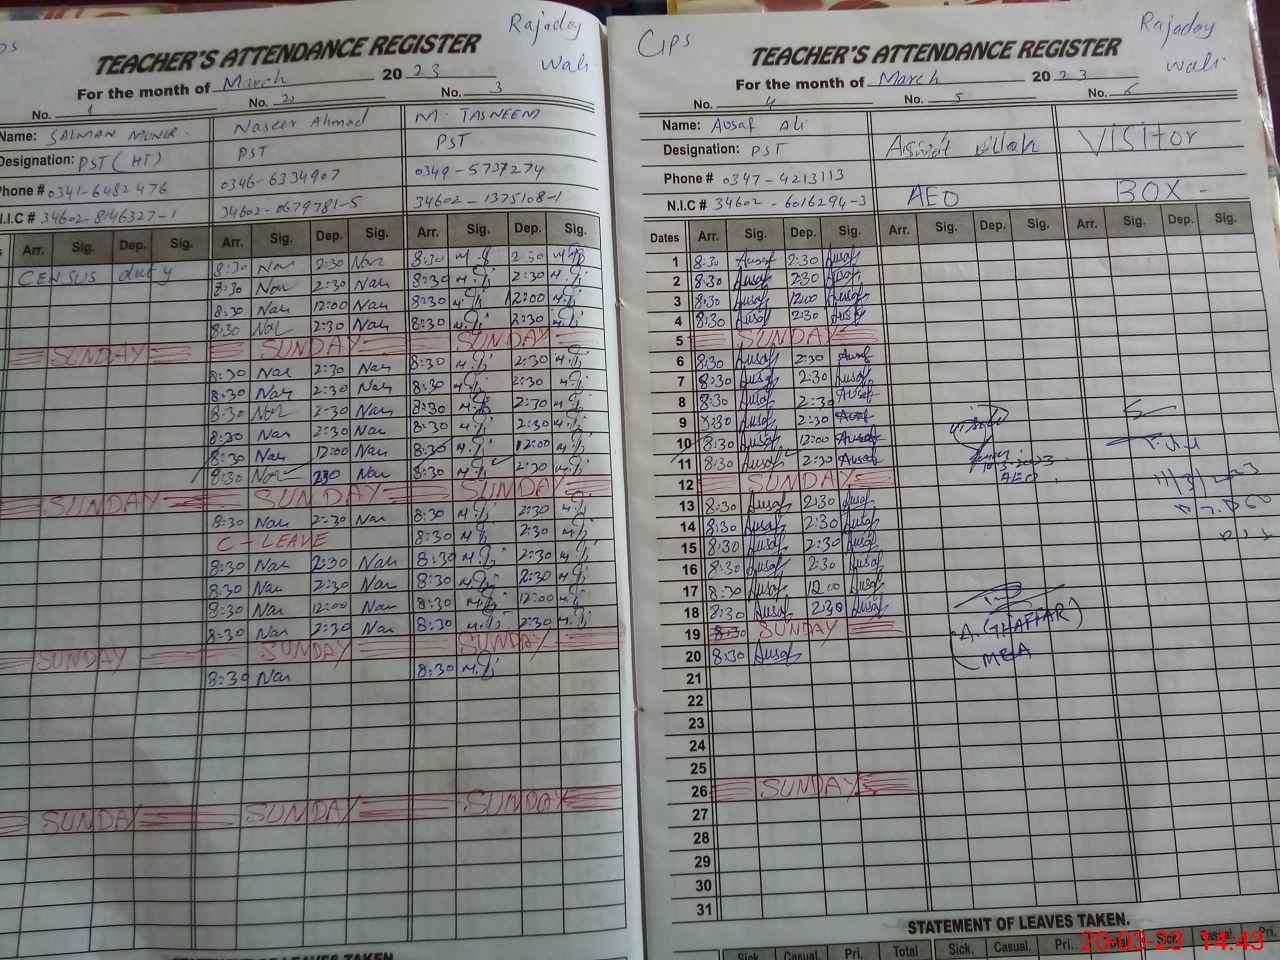 Rajaddy
Wali
TEACHER'S ATTENDANCE REGISTER
For the month of March 2023
No. 1 No. 2 No. 3
Name: SALMAN MUNIR Naseer Ahmad M. TASNEEM
Designation: PST (HT) PST PST
Phone # 0341-6482476 0346-6334907 0349-5737274
N.I.C # 34602-8146327-1 34602-0679781-5 34602-1375108-1
Arr. Sig. Dep. Sig. Arr. Sig. Dep. Sig. Arr. Sig. Dep. Sig.
CENSUS duty 8:30 Nar 2:30 Nar 8:30 2:30
8:30 Nar 2:30 Nar 8:30 2:30
8:30 Nar 12:00 Nar 8:30 12:00
8:30 Nar 2:30 Nar 8:30 2:30
SUNDAY SUNDAY SUNDAY
8:30 Nar 2:30 Nar 8:30 2:30
8:30 Nar 2:30 Nar 8:30 2:30
8:30 Nar 2:30 Nar 8:30 2:30
8:30 Nar 2:30 Nar 8:30 2:30
8:30 Nar 12:00 Nar 8:30 12:00
8:30 Nar 2:30 Nar 8:30 2:30
SUNDAY SUNDAY SUNDAY
8:30 Nar 2:30 Nar 8:30 2:30
C-LEAVE 8:30 2:30
8:30 Nar 2:30 Nar 8:30 2:30
8:30 Nar 2:30 Nar 8:30 2:30
8:30 Nar 12:00 Nar 8:30 12:00
8:30 Nar 2:30 Nar 8:30 2:30
SUNDAY SUNDAY SUNDAY
8:30 Nar 8:30
SUNDAY SUNDAY SUNDAY
STATEMENT OF LEAVES TAKEN
GPS
Rajaddy
Wali
TEACHER'S ATTENDANCE REGISTER
For the month of March 2023
No. 4 No. 5 No. 6
Name: Ausaf Ali
Designation: PST Asmat ullah VISITOR
Phone # 0347-4213113
N.I.C # 34602-6016294-3 AEO BOX
Dates Arr. Sig. Dep. Sig. Arr. Sig. Dep. Sig. Arr. Sig. Dep. Sig.
1 8:30 Ausaf 2:30 Ausaf
2 8:30 Ausaf 2:30 Ausaf
3 8:30 Ausaf 12:00 Ausaf
4 8:30 Ausaf 2:30 Ausaf
5 SUNDAY
6 8:30 Ausaf 2:30 Ausaf
7 8:30 Ausaf 2:30 Ausaf
8 8:30 Ausaf 2:30 Ausaf
9 8:30 Ausaf 2:30 Ausaf
10 8:30 Ausaf 12:00 Ausaf
11 8:30 Ausaf 2:30 Ausaf
AEO
12 SUNDAY
13 8:30 Ausaf 2:30 Ausaf
14 8:30 Ausaf 2:30 Ausaf
15 8:30 Ausaf 2:30 Ausaf
16 8:30 Ausaf 2:30 Ausaf
17 8:30 Ausaf 12:00 Ausaf
18 8:30 Ausaf 2:30 Ausaf
19 8:30 SUNDAY
A. GHAFFAR
20 8:30 Ausaf
MEA
21
22
23
24
25
26 SUNDAY
27
28
29
30
31
STATEMENT OF LEAVES TAKEN.
Sick. Casual. Pri. Total Sick. Casual. Pri. Total Sick. Casual. Pri.
20-03-23 14:43